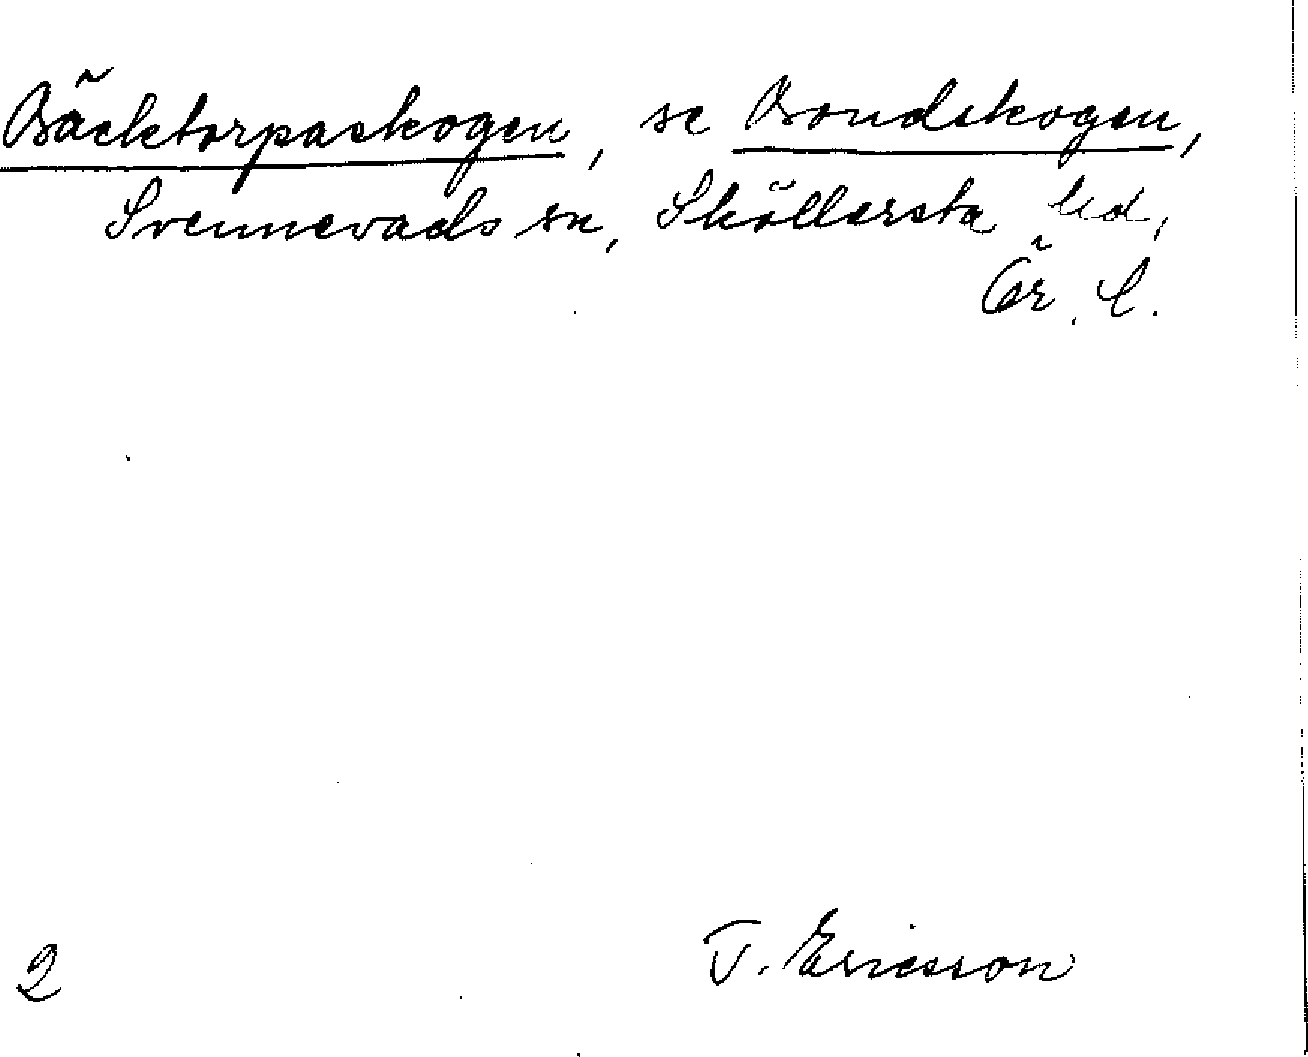 Bäcktorpaskogen, se Bondskogen,
Svennevads sn, Sköllersta hd,
Ör. l.
2
T. Ericsson